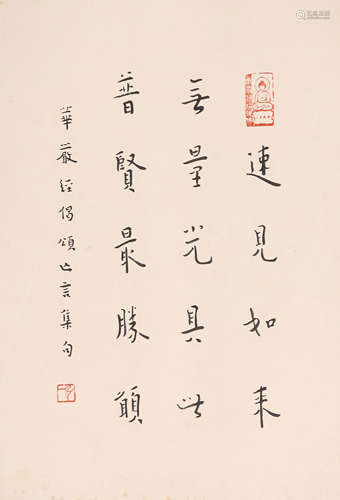 速見如来
無量光具此
普賢最勝願
華嚴經偈頌七言集句